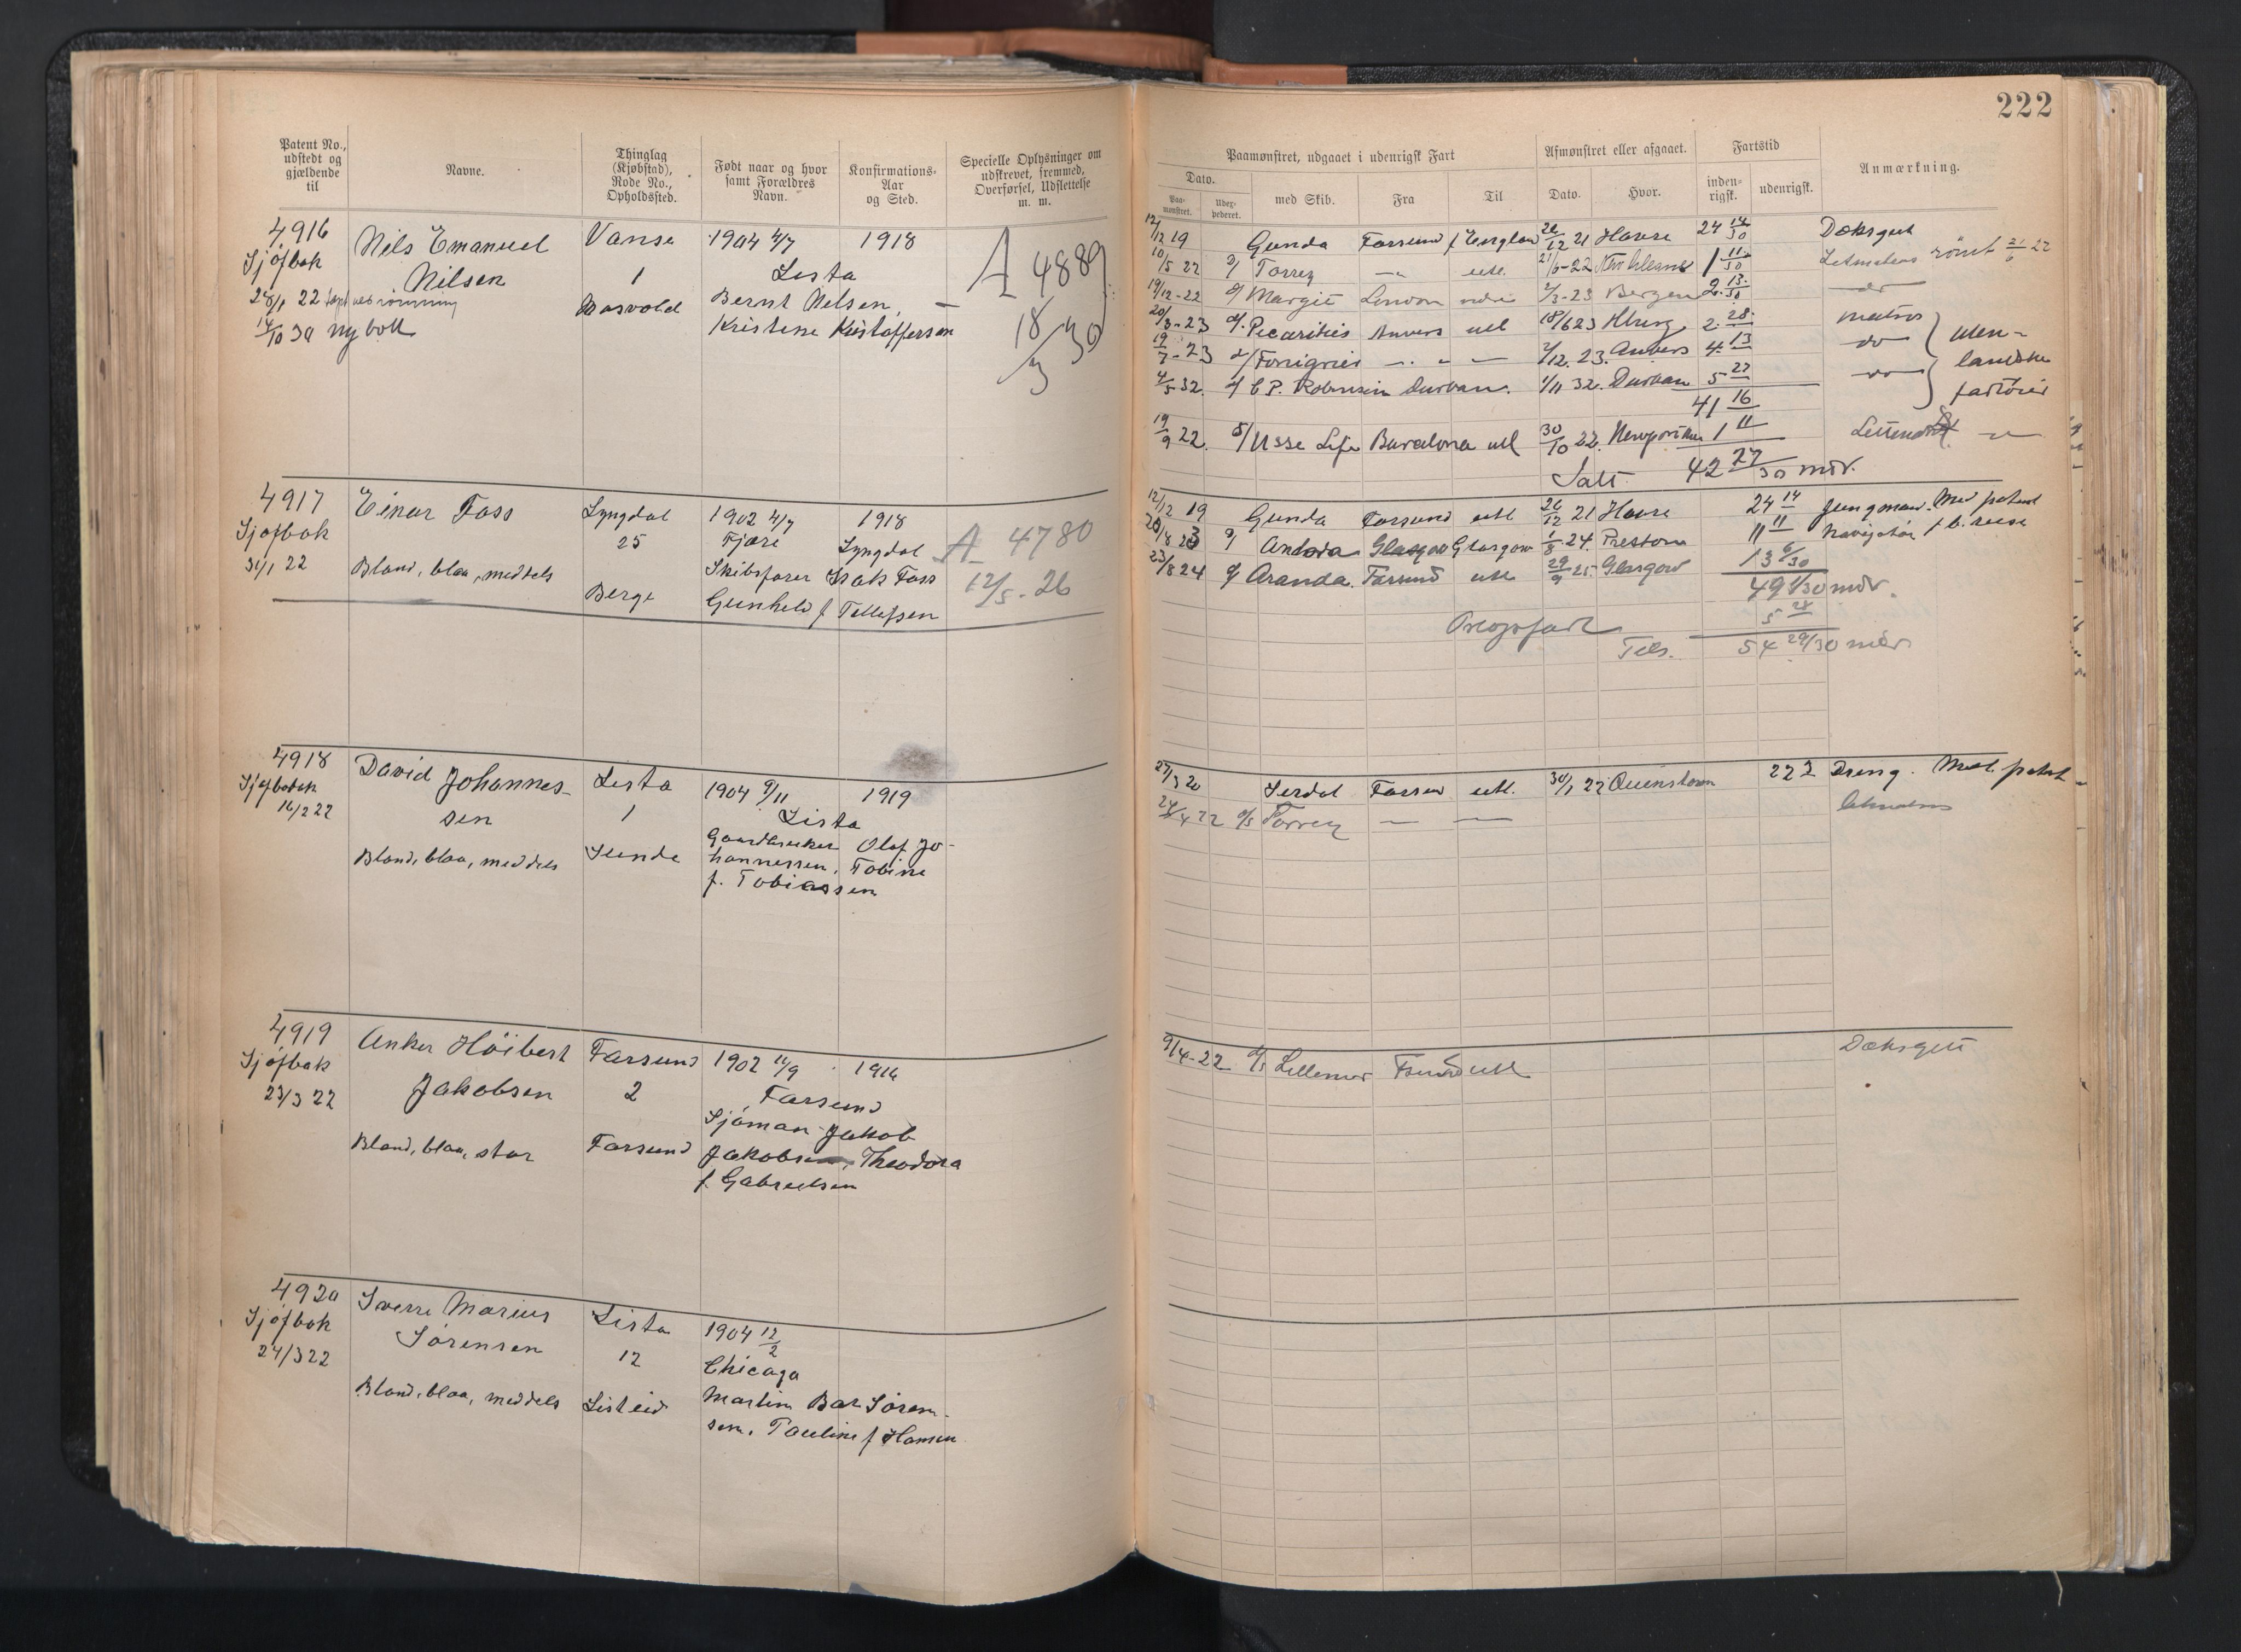 222
Patent No., udstedt og gjældende til
Navne.
Thinglag (Kjøbstad), Rode No., Opholdssted.
Født naar og hvor samt Forældres Navn.
Konfirmations-Aar og Sted.
Specielle Oplysninger om udskrevet, fremmed, Overførsel, Udslettelse m. m.
Paamønstret, udgaaet i udenrigsk Fart
Dato.
Paa-mønstret.
Udex-pederet.
med Skib.
Fra
Til
Afmønstret eller afgaaet.
Dato.
Hvor.
Fartstid
inden-rigsk.
udenrigsk.
Anmærkning.
4916 Nils Emanuel Vanse 1904 4/7 1918 A 4889
Sjøfbok Nilsen 1 Lista
28/1 22 Bernt Nilsen, 18/3 30
14/10 30 ny bok Kristine Kristoffersen
12/12 19 Gunda Farsund 26/12 21 Havre 24 14/30 Dæksgut
10/5 22 Torrey utl. 21/6-22 New Orleans 1 11/30 Letmatros rømt 21/6 22
19/12-22 Margit London 2/3-23 Bergen 2. 13/30 do
20/3-23 Anvers utl 18/6 23 Hburg 2. 28 matros
19/7-23 2/12. 23. Anvers 4. 13 do uten-
4/5 32. Durban. 1/11 32. Durban 5 27 do landske
41 16
19/9 22. Barcelona utl 30/10 22. 1 11
42 27/30 mdr.
4917 Einar Foss Lyngdal 1902 4/7 1918 A 4780
Sjøfbok 25 Fjære Lyngdal
31/1 22 Blond, blaa, meddels Skibsfører Isak Foss 12/5-26
Berge Gunhild f Tellefsen
12/12 19 Gunda Farsund utl 26/12 21 Havre 24 14 Jungmand. Med patent
20/8 23 Glasgow Glasgow 1/8 24. Preston 11 11
23/8 24 Aranda. Farsund utl 29/9 25. Glasgow 13 6/30
49 1/30 mdr.
5 28
Tils. 54 29/30 mdr
4918 David Johannes- Lista 1904 9/11 1919
Sjøfbok sen 1 Lista
16/2 22 Gaardbruker Olaf Jo-
Blond, blaa, meddels Sunde hannessen, Tobine
f. Tobiassen
27/3 20 Serdal utl. 30/1 22 Quinstown 22 2 Dreng. Med patent
24/4 22 Torrey
4919 Anker Høibert Farsund 1902 14/9 1916
Sjøfbok Jakobsen 2 Farsund
23/3 22 Sjøman Jakob
Blond, blaa, stor Farsund Jakobsen, Theodora
f. Gabrielsen
9/4-22 Lillemor utl Dæksgut
4920 Sverre Marius Lista 1904 12/2
Sjøfbok Sørensen 12 Chicago
24/3 22
Blond, blaa, meddels Listeid Martin Bar Søren-
sen, Pauline f Hansen